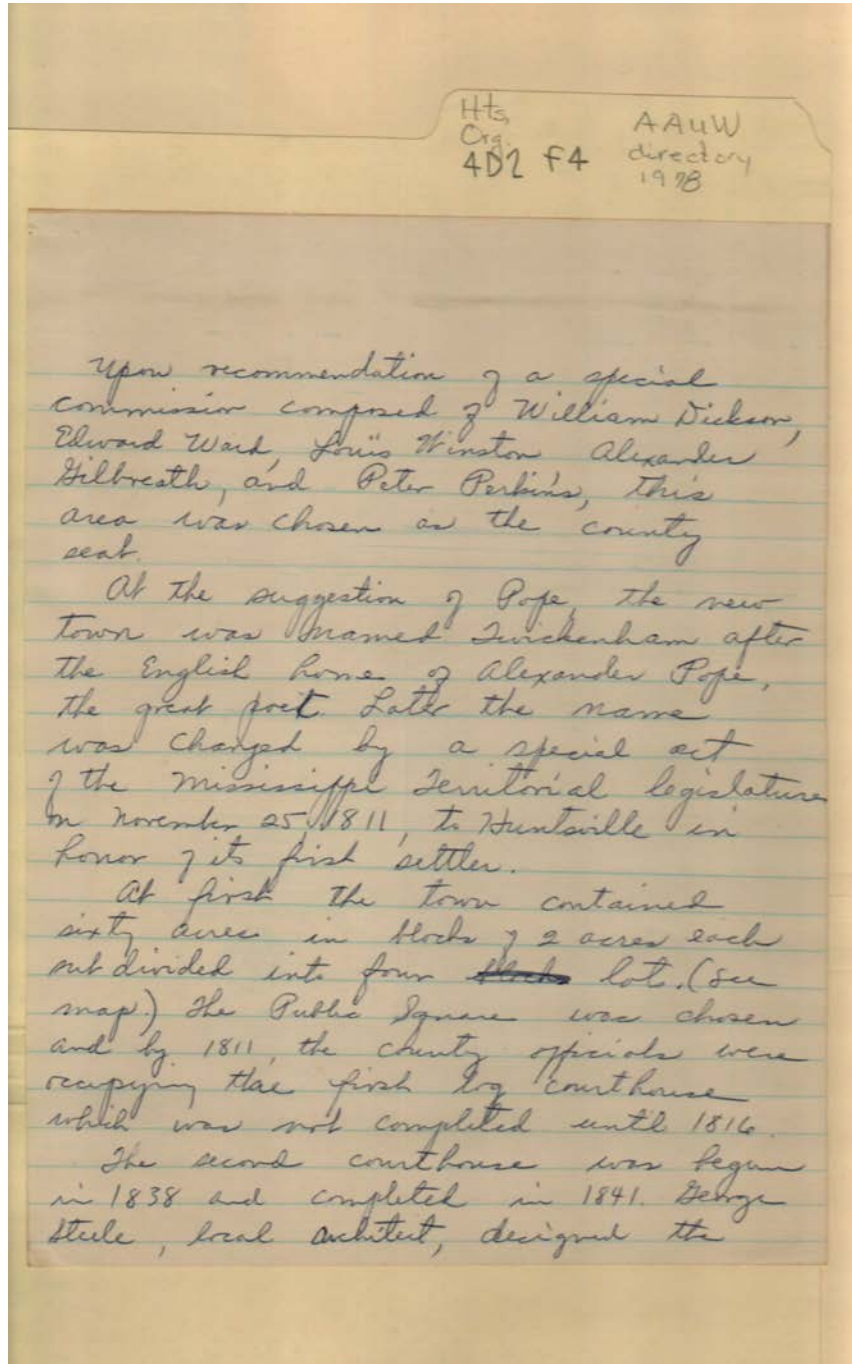 Hts,
Org.
4D2 F4
AAUW
directory
1978
Upon recommendation of a special
commission composed of William Dickson,
Edward Ward, Louis Winston Alexander
Gilbreath, and Peter Perkins, this
area was chosen as the county
seat.
At the suggestion of Pope, the new
town was named Twickenham after
the English home of Alexander Pope,
the great poet. Later the name
was changed by a special act
of the Mississippi Territorial legislature
on November 25, 1811, to Huntsville in
honor of its first settler.
At first the town contained
sixty acres in blocks of 2 acres each
subdivided into four blocks lot. (See
map.) The Public Square was chosen
and by 1811, the county officials were
occupying the first log courthouse
which was not completed until 1816.
The second courthouse was begun
in 1838 and completed in 1841. George
Steele, local architect, designed the